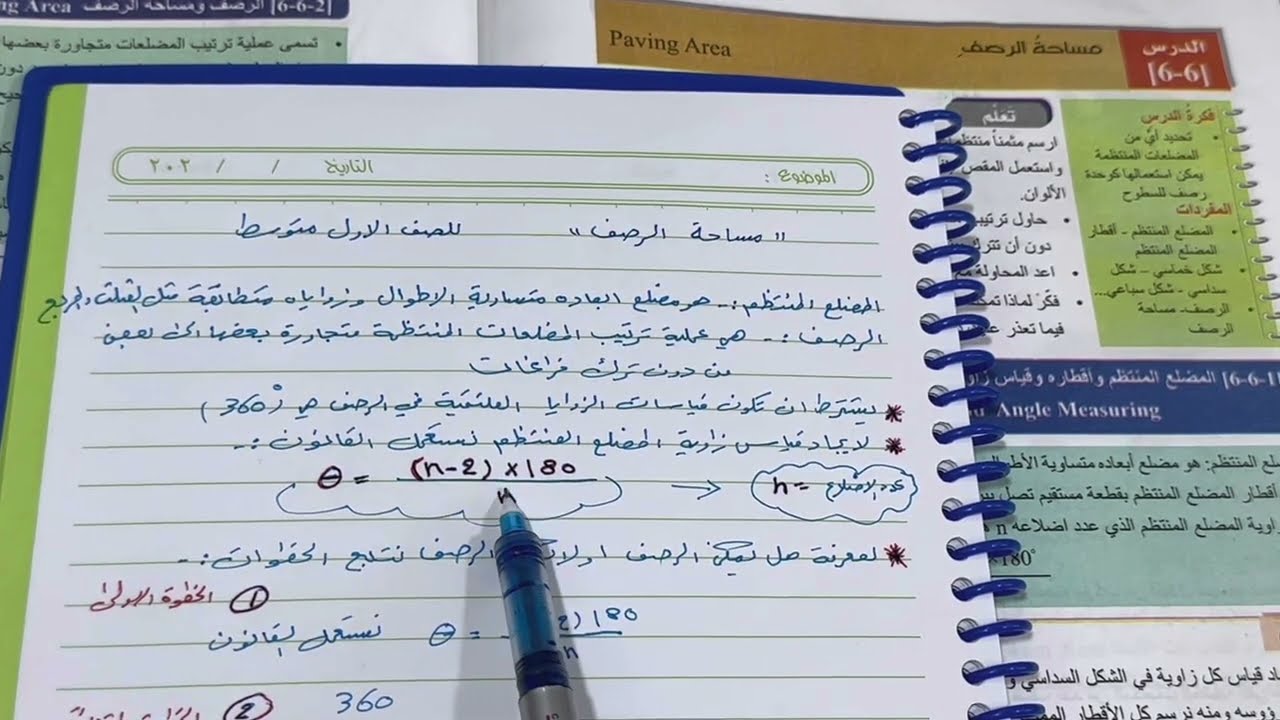 [6-6-2] الرصف ومساحة الرصف
تسمى عملية ترتيب المضلعات متجاورة بعضها
الدرس
[6-6]
مساحة الرصف
Paving Area
فكرة الدرس
تحديد أيّ من
المضلعات المنتظمة
يمكن استعمالها كوحدة
رصف للسطوح
المفردات
المضلع المنتظم - أقطار
المضلع المنتظم
شكل خماسي - شكل
سداسي - شكل سباعي...
الرصف - مساحة
الرصف
تَعَلَّم
ارسم مثمناً منتظماً
واستعمل المقص
الألوان.
حاول ترتيب
دون أن تترك
اعد المحاولة مع
فكّر لماذا
فيما تعذر
[6-6-1] المضلع المنتظم وأقطاره وقياس
Angle Measuring
المنتظم: هو مضلع أبعاده متساوية
أقطار المضلع المنتظم بقطعة مستقيم تصل
المضلع المنتظم الذي عدد اضلاعه n
180°
قياس كل زاوية في الشكل السداسي
ومنه نرسم كل الأقطار
الموضوع :
التاريخ / / ٢٠٢
"مساحة الرصف" للصف الاول متوسط
المضلع المنتظم :- هو مضلع ابعاده متساوية الاطوال وزواياه متطابقة مثل المثلث والمربع
الرصف :- هي عملية ترتيب المضلعات المنتظمة متجاورة بعضها الى بعض
من دون ترك فراغات
* يشترط ان تكون قياسات الزوايا الملتقية في الرصف هي (360°)
* لايجاد قياس زاوية المضلع المنتظم نستعمل القانون :-
θ = (n-2)×180 / n → n = عدد الاضلاع
* لمعرفة هل يمكن الرصف اولا الرصف نتبع الخطوات :-
① الخطوة الاولى
نستعمل القانون θ = 2)180 / n
② 360